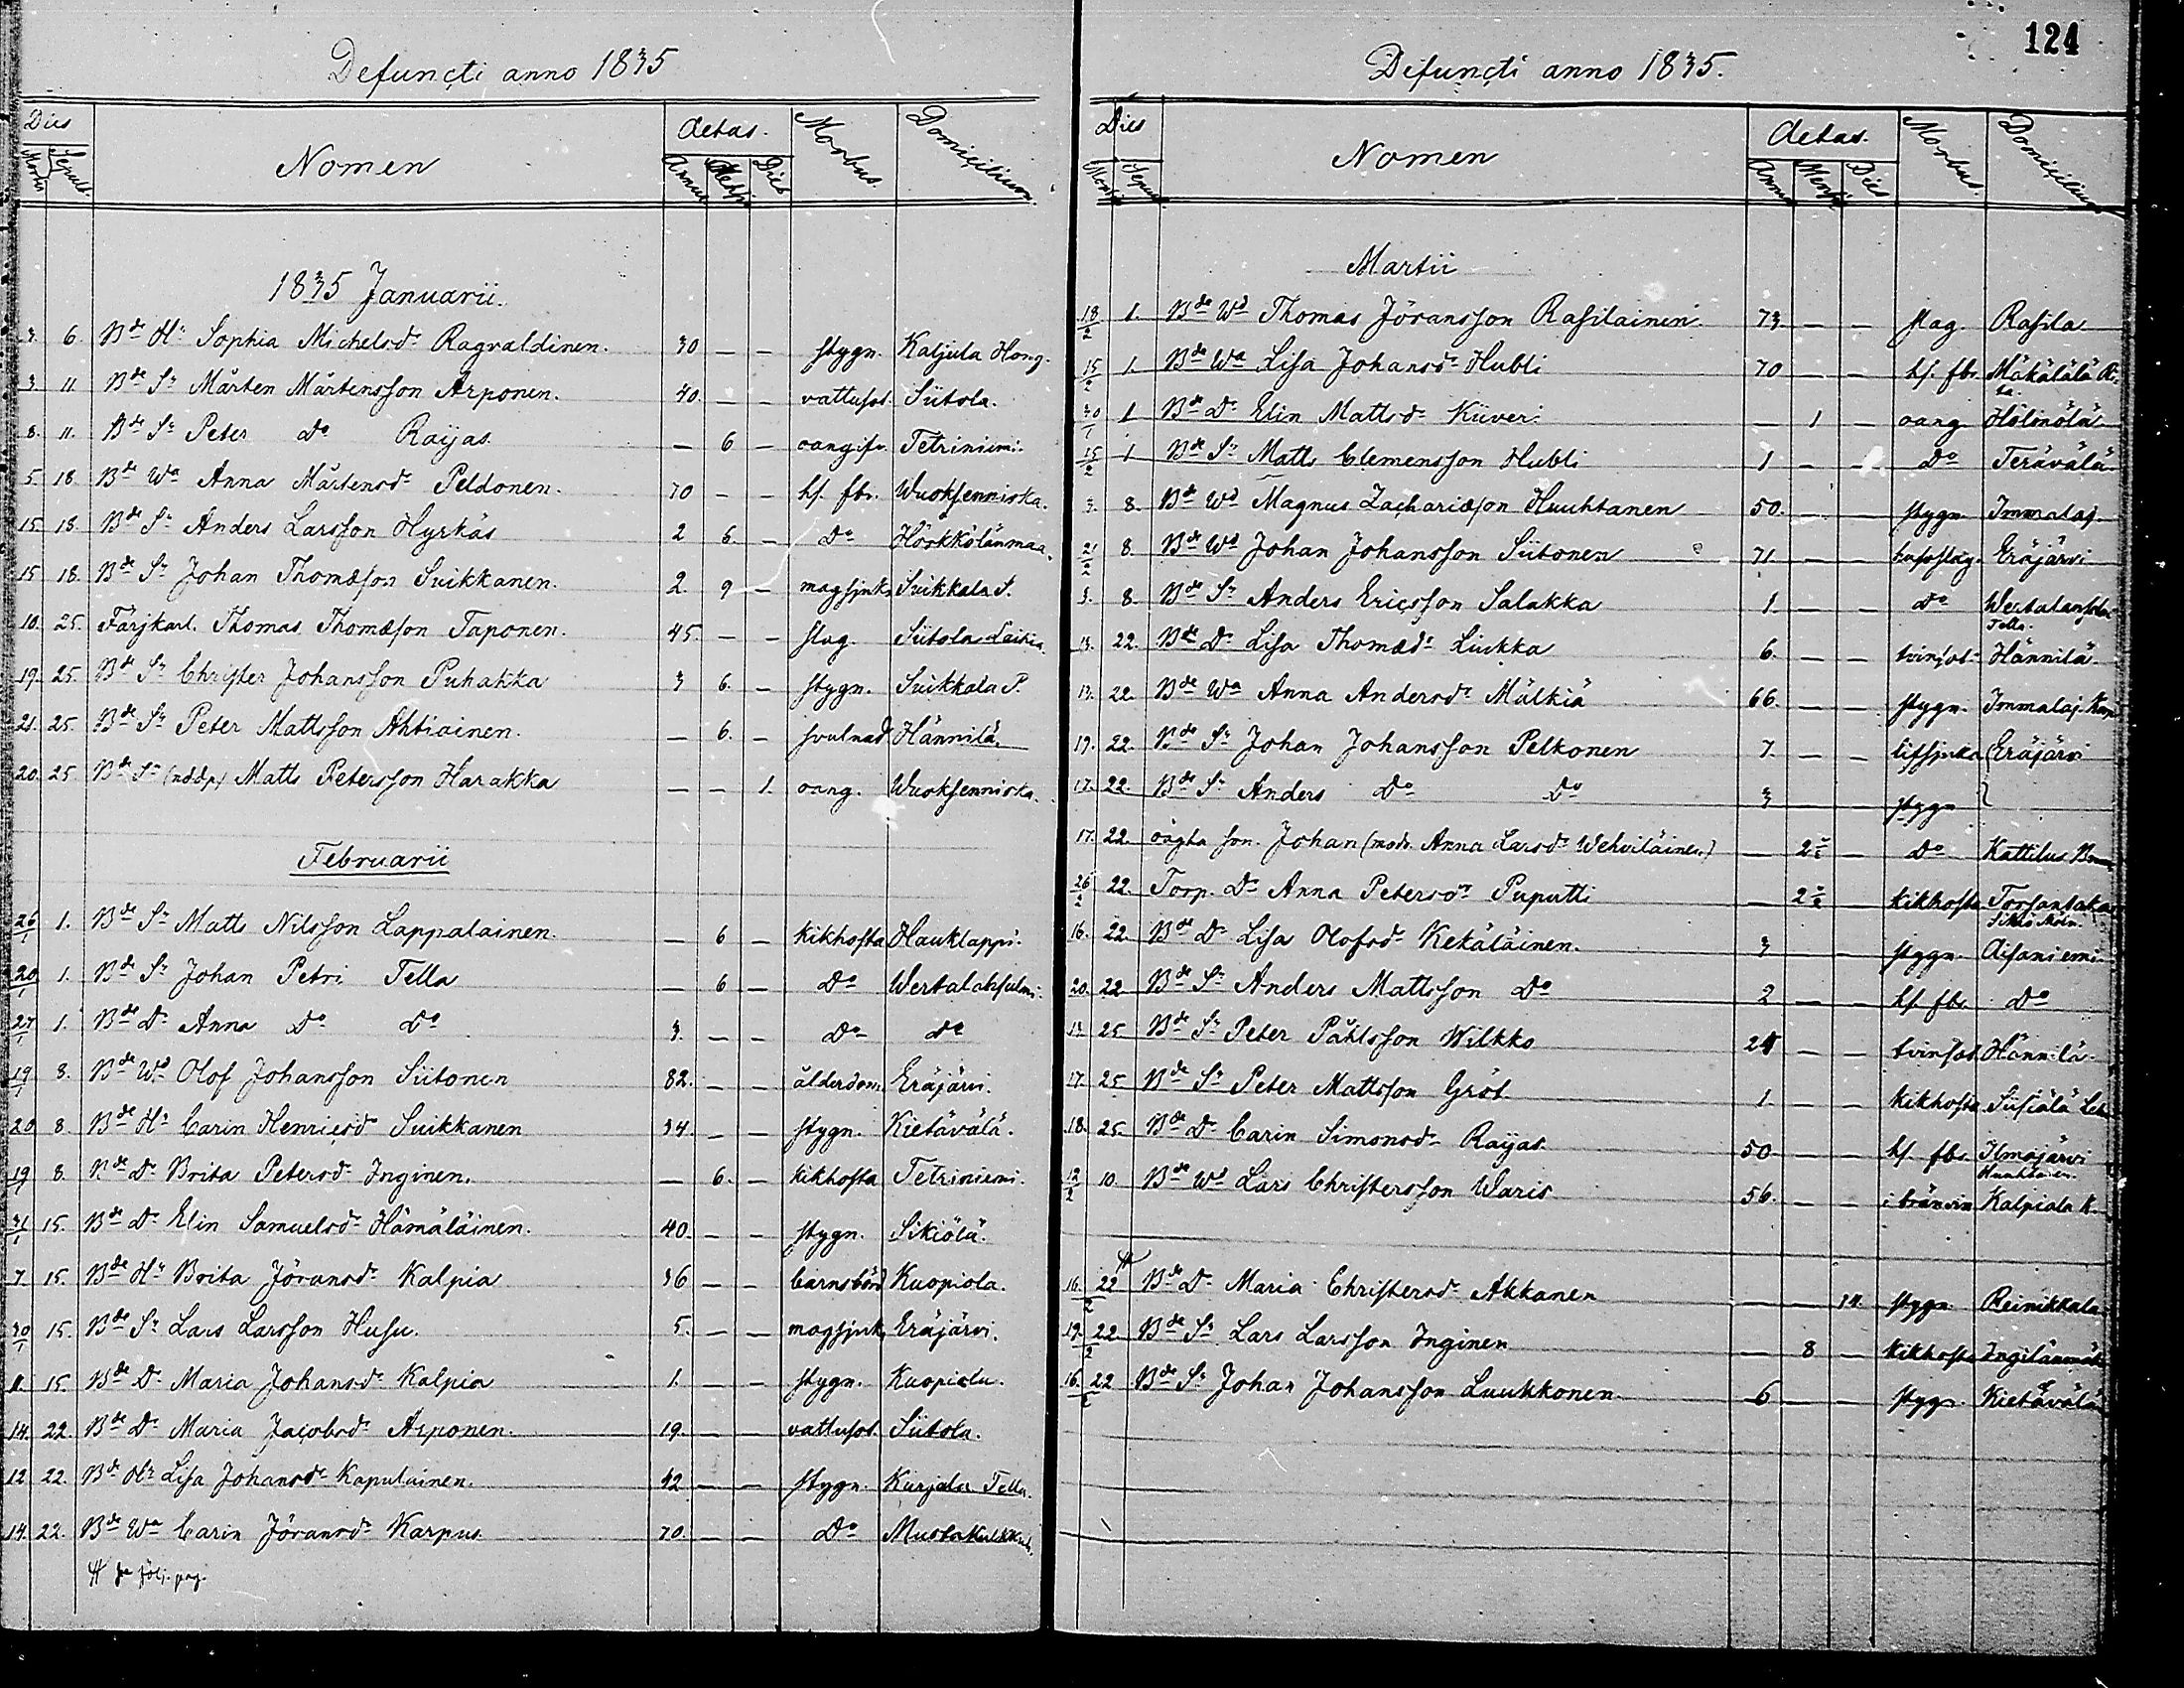 Defuncti anno 1835
Dies Nomen Aetas. Morbus. Domicilium
Mortis Sepult. Annus Mensis Dies
1835 Januarii.
3. 6. Bde Hu Sophia Michelsdr Ragvaldinen. 30 — — stygn. Kaljula Hong.
3. 11 Bde Sn Mårten Mårtensson Arponen. 40. — — vattusot. Siitola.
8. 11. Bde Sn Peter Do Raijas — 6 — oangifv. Tetriniemi.
5. 18 Bde Wa Anna Mårtensdr Peldonen. 70 — — hs. fbr. Wuoksenniska.
15. 18. Bde Sn Anders Larsson Hyrkäs 2 6. — Do Hörkkölänmaa.
15 18. Bde Sn Johan Thomæson Suikkanen. 2. 9 — magsjuk. Suikkala S.
10. 25. Färjkarl. Thomas Thomæson Taponen. 45. — — slag. Siitola Laitia.
19. 25. Bde Sn Christer Johansson Puhakka 3 6. — stygn. Suikkala P.
21. 25. Bde Sn Peter Mattsson Ahtiainen. — 6. — svulnad Hännilä.
20. 25 Bde Sn (nöddp) Matts Petersson Harakka — — 1. oang. Wuoksenniska.
Februarii
26/1 1. Bde Sn Matts Nilsson Lappalainen. — 6 — kikhosta Hauklappi.
20/1 1. Bde Sn Johan Petri Tella — 6 — Do Wertalahsulmi.
27/1 1. Bde Dr Anna Do Do 3. — — Do do
19/1 8. Bde Wd Olof Johansson Siitonen 82. — — ålderdom Eräjärvi.
20 8. Bde Hu Carin Henricsdr Suikkanen 34. — — stygn. Kietävälä.
19/1 8. Bde Dr Brita Petersdr Inginen. — 6. — kikhosta Tetriniemi.
31/1 15. Bde Dr Elin Samuelsdr Hämäläinen. 40. — — stygn. Sikiölä.
7. 15. Bde Hu Brita Jöransdr Kalpia 36 — — barnsbörd Kuopiola.
30/1 15. Bde Sn Lars Larsson Husu. 5. — — magsjuk. Eräjärvi.
11. 15. Bde Dr Maria Johansdr Kalpia 1. — — stygn. Kuopiola.
14. 22. Bde Dr Maria Jacobsdr Arponen. 19. — — vattusot. Siitola.
12 22. Bde Hu Lisa Johansdr Kapulainen. 42 — — stygn. Kurjala Tella.
14. 22. Bde Wa Carin Jöransdr Karpus. 70. — — Do Mustakulkkula.
# se följ. pag.
124
Defuncti anno 1835.
Dies Nomen Aetas. Morbus. Domicilium
Mortis Sepult. Annus Mensis Dies
Martii
18/2 1. Bde Wd Thomas Jöransson Rasilainen. 73. — — slag. Rasila
15/2 1. Bde Wa Lisa Johansdr Hubli 70 — — hs. fbr. Mäkälälä
30/1 1 Bde Dr Elin Mattsdr Kiiveri — 1 — oang. Hölinölä
15/2 1 Bde Sn Matts Clemensson Hubli 1 — — Do Terävälä
3. 8. Bde Wd Magnus Zachariæson Huuhtanen 50. — — stygn. Immalaj.
21/2 8. Bde Wd Johan Johansson Siitonen 71. — — Eräjärvi
3. 8. Bde Sn Anders Ericsson Salakka 1. — — do
Tella.
13. 22. Bde Dr Lisa Thomædr Liukka 6. — — tvinsot Hännilä
13. 22. Bde Wa Anna Andersdr Mälkiä 66. — — stygn. Immalaj.
19. 22. Bde Sn Johan Johansson Pelkonen 7. — — lifsjuka Eräjärvi
17. 22. Bde Sn Anders Do Do 3 — — stygn
17. 22. oägta son. Johan (mod. Anna Larsdr Wehviläinen) — — Do Kattilus
26/2 22. Torp. Dr Anna Petersdr Puputti — — kikhosta Torsantaka
16. 22. Bde Dr Lisa Olofsdr Kekäläinen. 3 — — stygn. Äisäniemi
20. 22 Bde Sn Anders Mattsson Do 2 — — hs. fbr. Do
13. 25 Bde Sn Peter Påhlsson Wilkko 24 — — tvinsot. Hännilä.
17. 25 Bde Sn Peter Mattsson Gröt 1. — — kikhosta Siisiälä
18. 25. Bde Dr Carin Simonsdr Raijas 50 — — hs. fbr. Ilmajärvi
12/2 10. Bde Wd Lars Christersson Waris 56. — — i bränvin Kalpiala K.
#
16./2 22 Bde Dr Maria Christersdr Akkanen — — 14. stygn Reinikkala
19./2 22 Bde Sn Lars Larsson Inginen — 8 — kikhosta Ingilänmäki
16/2 22 Bde Sn Johan Johansson Luukkonen 6 — — stygn. Kietävälä